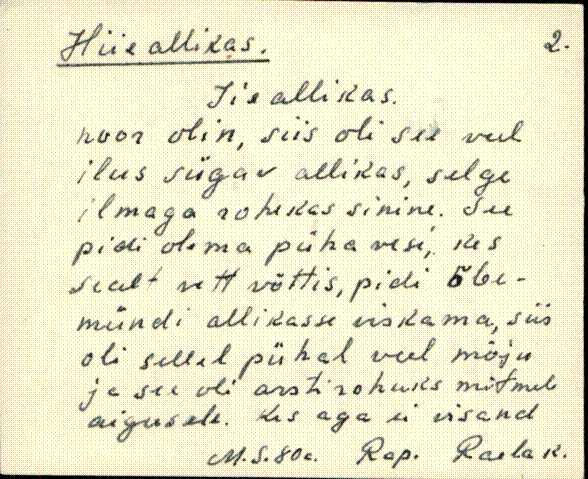 Hiie allikas. 2.
Iie allikas.
noor olin, siis oli see veel
ilus sügav allikas, selge
ilmaga rohekas sinine. See
pidi olema püha vesi, kes
sealt vett võttis, pidi õbe-
mündi allikasse viskama, siis
oli sellel pühal veel mõju
ja see oli arstirohuks mitmele
aigusele. Kes aga ei visand
M.S. 80a. Rap. Raela k.